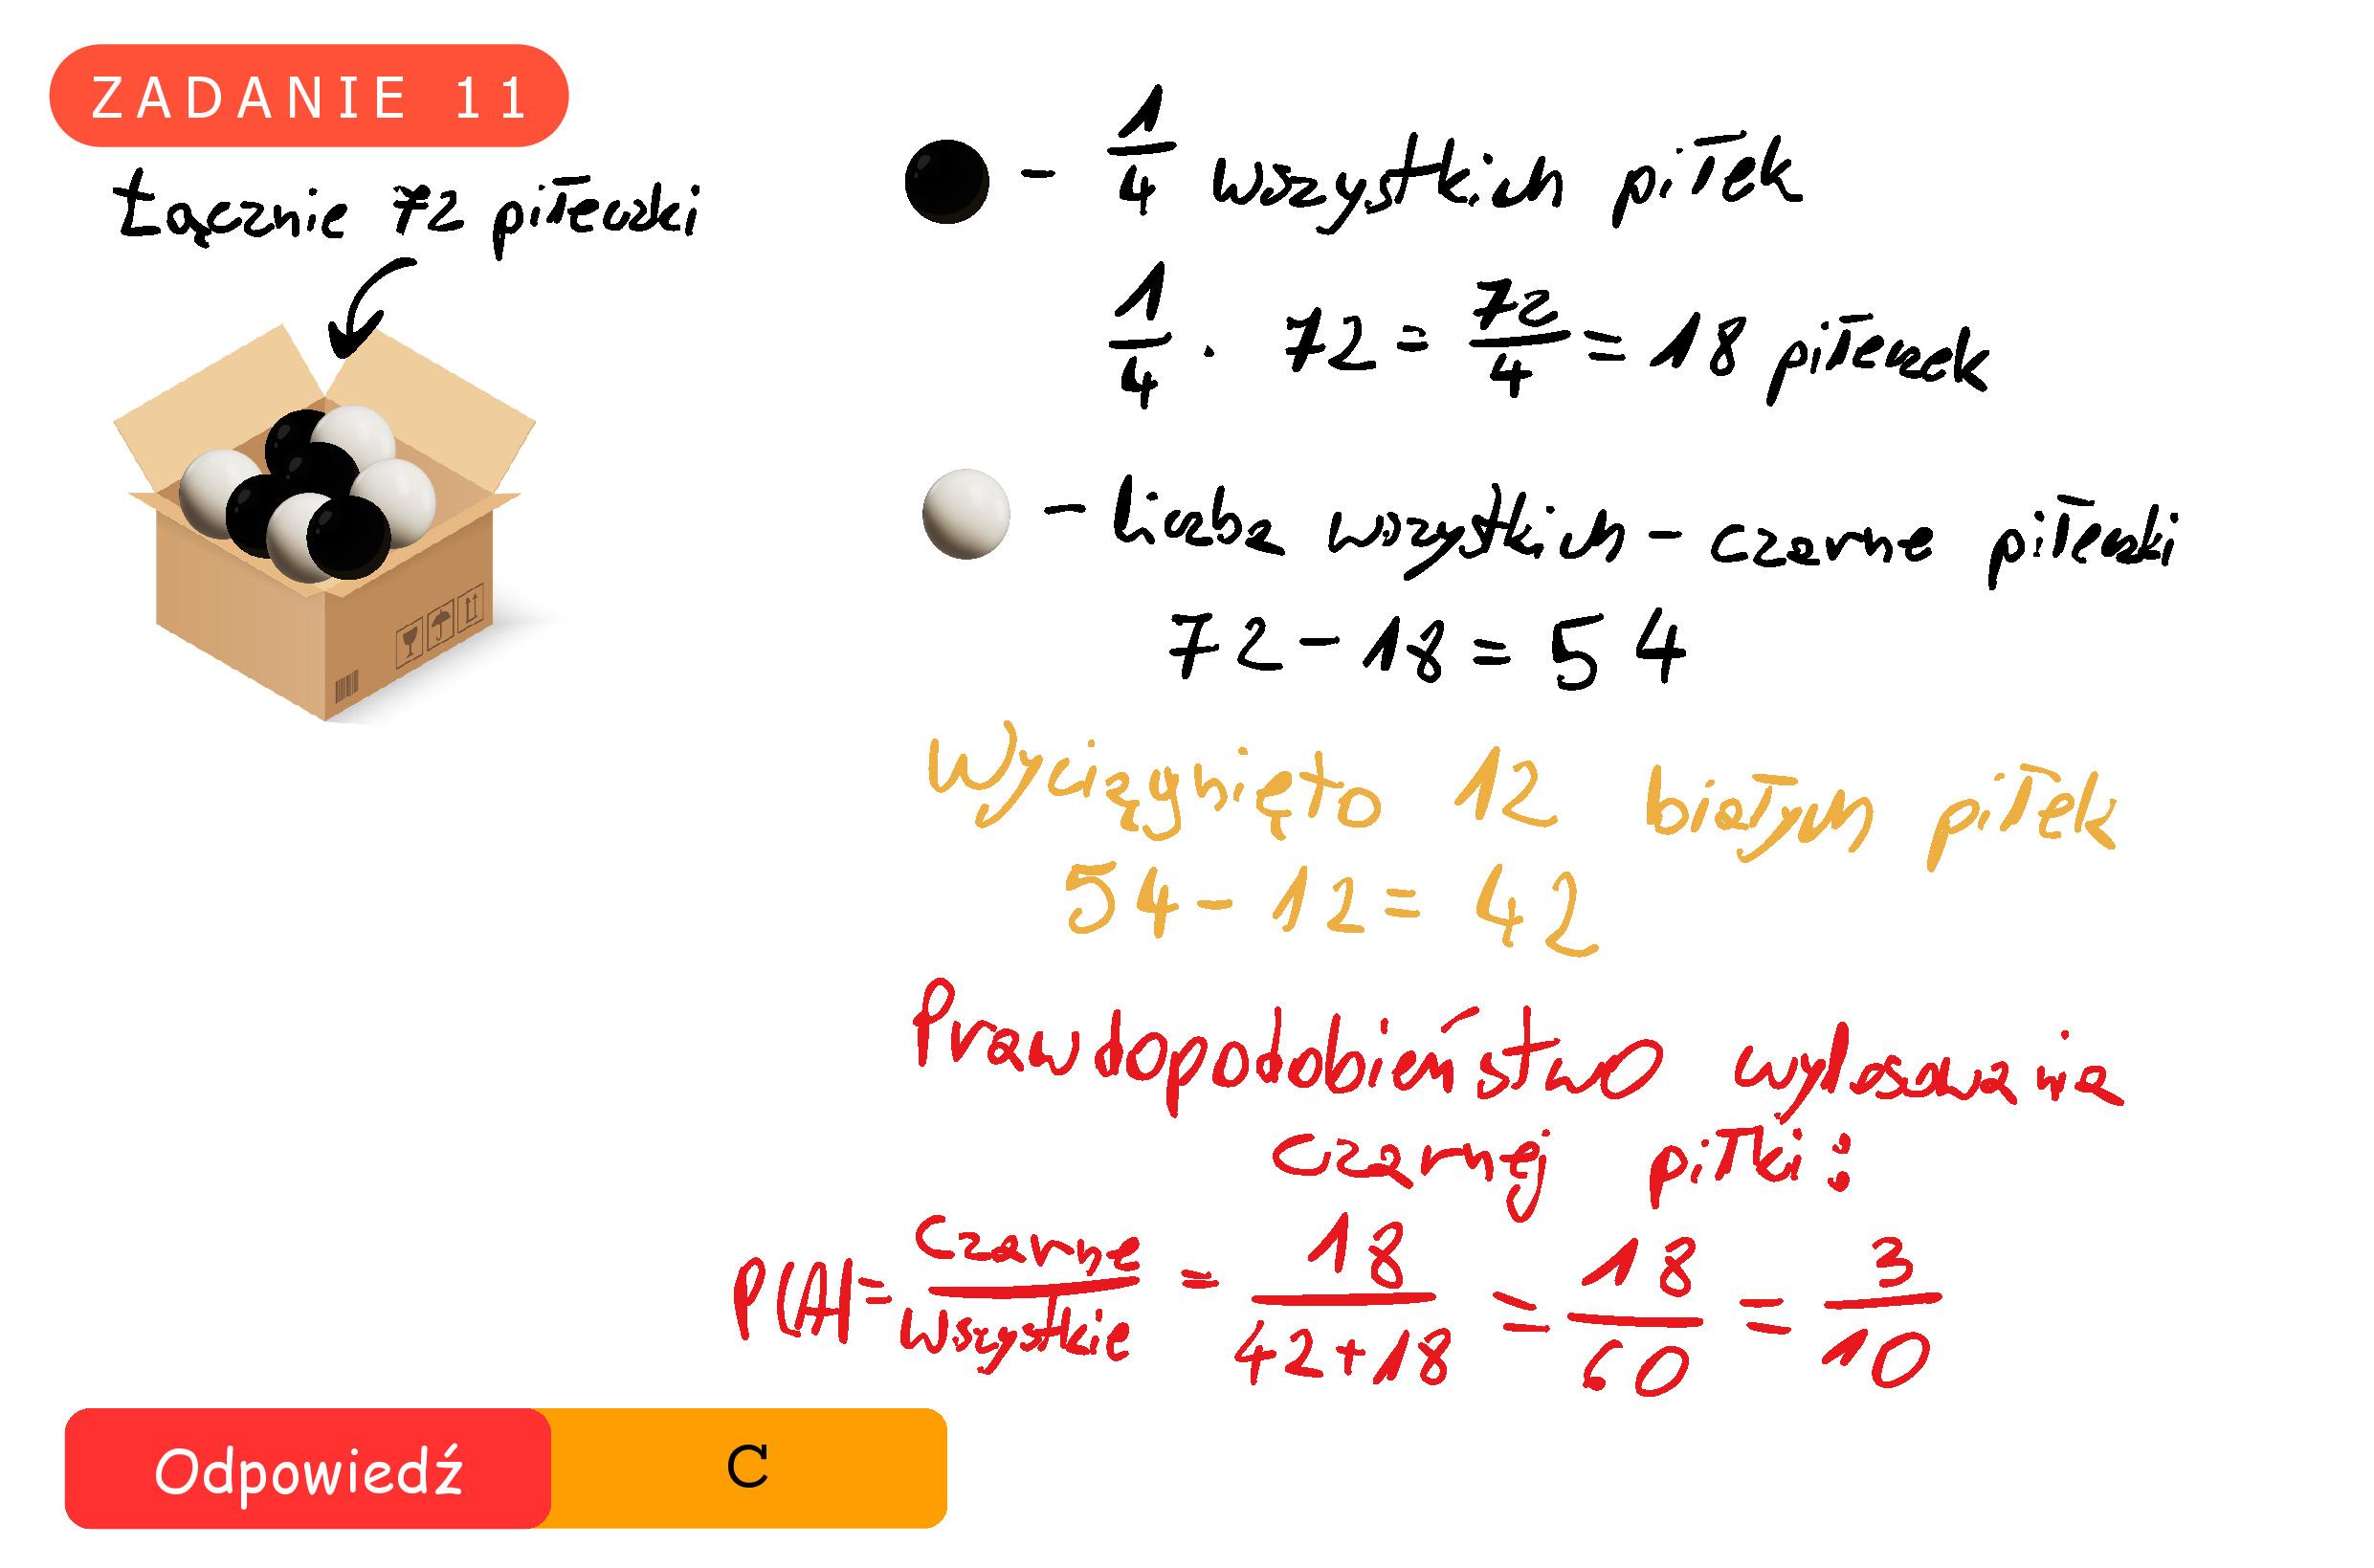 ZADANIE 11
Łącznie 72 piłeczki
- 1/4 wszystkich piłek
1/4 · 72 = 72/4 = 18 piłeczek
- liczba wszystkich - czarne piłeczki
72 - 18 = 54
Wyciągnięto 12 białych piłek
54 - 12 = 42
Prawdopodobieństwo wylosowania
czarnej piłki:
P(A) = czarne/wszystkie = 18/42+18 = 18/60 = 3/10
Odpowiedź C